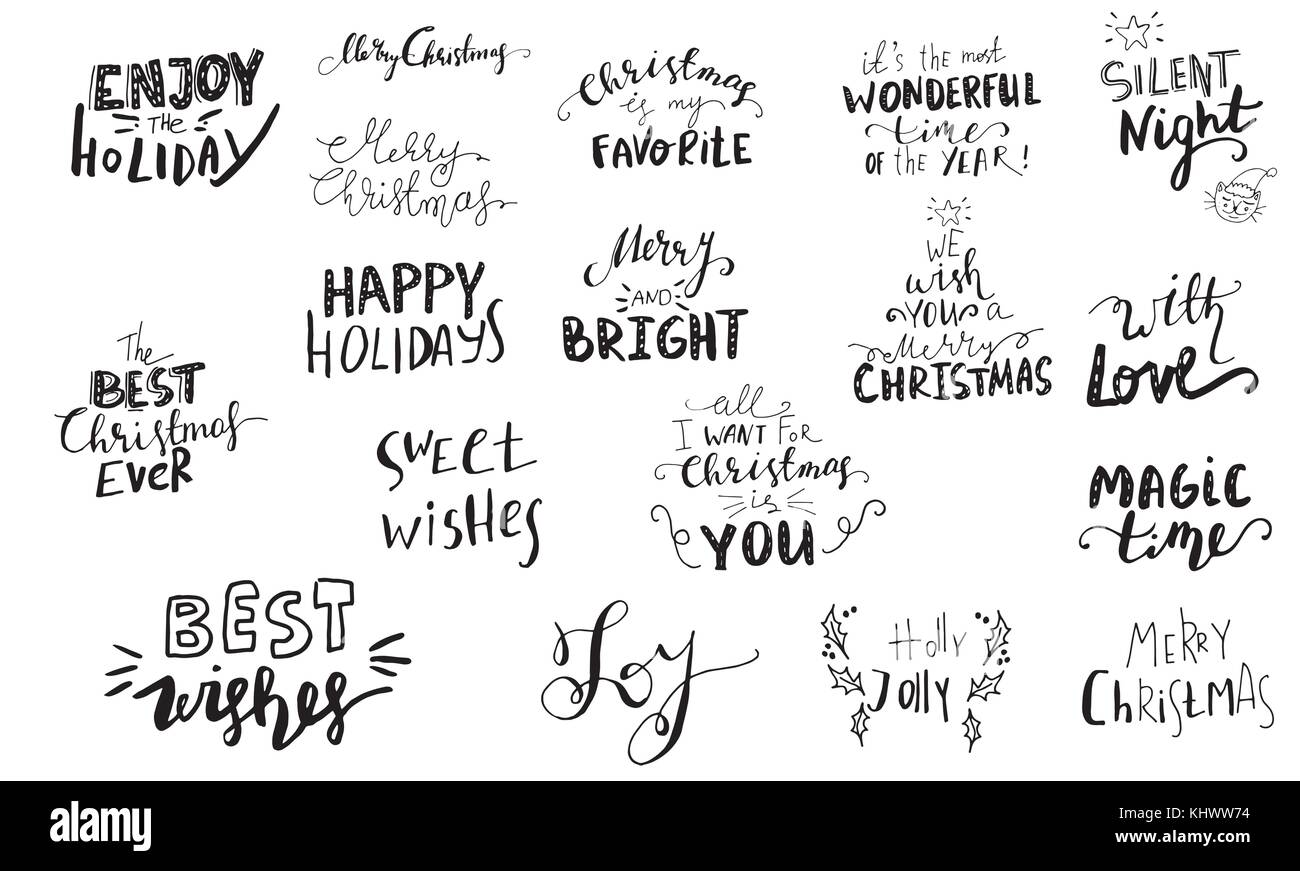 ENJOY
THE
HOLIDAY
Merry Christmas
Merry
Christmas
Christmas
is my
FAVORITE
it's the most
WONDERFUL
time
OF the YEAR!
SILENT
Night
HAPPY
HOLIDAYS
Merry
AND
BRIGHT
WE
wish
YOU a
Merry
CHRISTMAS
with
Love
The
BEST
Christmas
EVER
SWEET
wisHes
all
I WANT FOR
Christmas
is
YOU
MAGIC
time
BEST
wishes
Joy
Holly
Jolly
MERRY
ChRISTMAS
alamy
Image ID: KHWW74
www.alamy.com